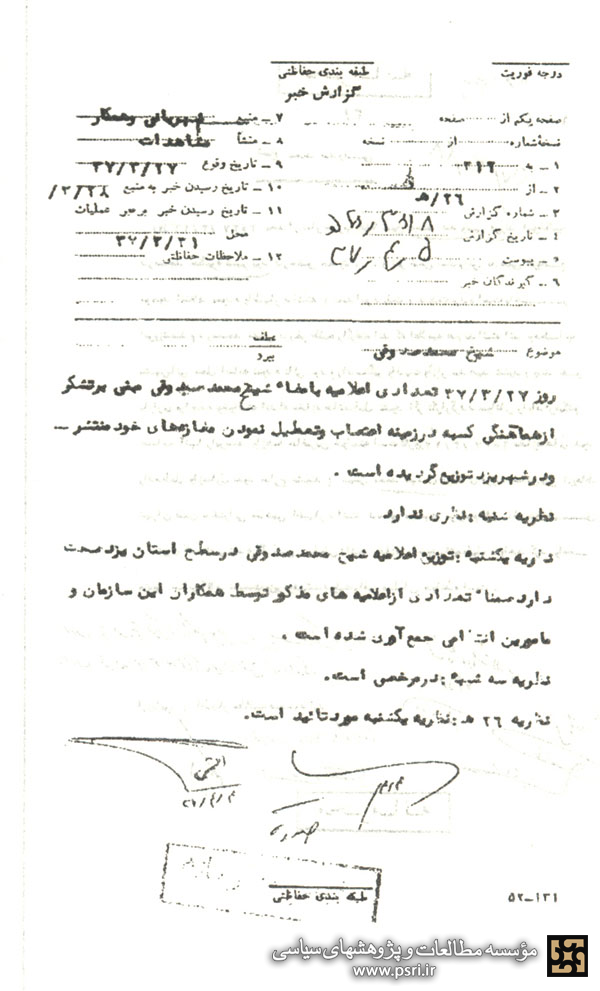 درجه فوریت
طبقه بندی حفاظتی
گزارش خبر
صفحه یکم از صفحه
نسخه شماره از نسخه
۱ – به ۳۱۲
۲ – از ۲۶/هـ
۳ – شماره گزارش
۴ – تاریخ گزارش
۵ – پیوست
۶ – گیرندگان خبر
۷ – منبع شهربانی وهمکار
۸ – منشأ مشاهدات
۹ – تاریخ وقوع ۳۷/۳/۲۷
۱۰ – تاریخ رسیدن خبر به منبع
۱۱ – تاریخ رسیدن خبر برهبر عملیات
محل ۳۷/۳/۳۱
۱۲ – ملاحظات حفاظتی
موضوع شیخ محمدصدوقی
عطف
پیرو
روز ۳۷/۳/۲۷ تعدادی اعلامیه بامضاء شیخ محمد صدوقی مبنی برتشکر
ازهماهنگی کسبه درزمینه اعتصاب وتعطیل نمودن مغازه‌های خود منتشر –
ودرشهریزد توزیع گردیده است .
نظریه شنبه : نظری ندارد
نظریه یکشنبه : توزیع اعلامیه شیخ محمدصدوقی درسطح استان یزد صحت
دارد ضمناً تعدادی ازاعلامیه های مذکور توسط همکاران این سازمان و
مامورین انتظامی جمع آوری شده است .
نظریه سه شنبه : درمرخصی است .
نظریه ۲۶ هـ : نظریه یکشنبه مورد تائید است .
طبقه بندی حفاظتی
۵۲–۱۳۱
مؤسسه مطالعات و پژوهشهای سیاسی
www.psri.ir